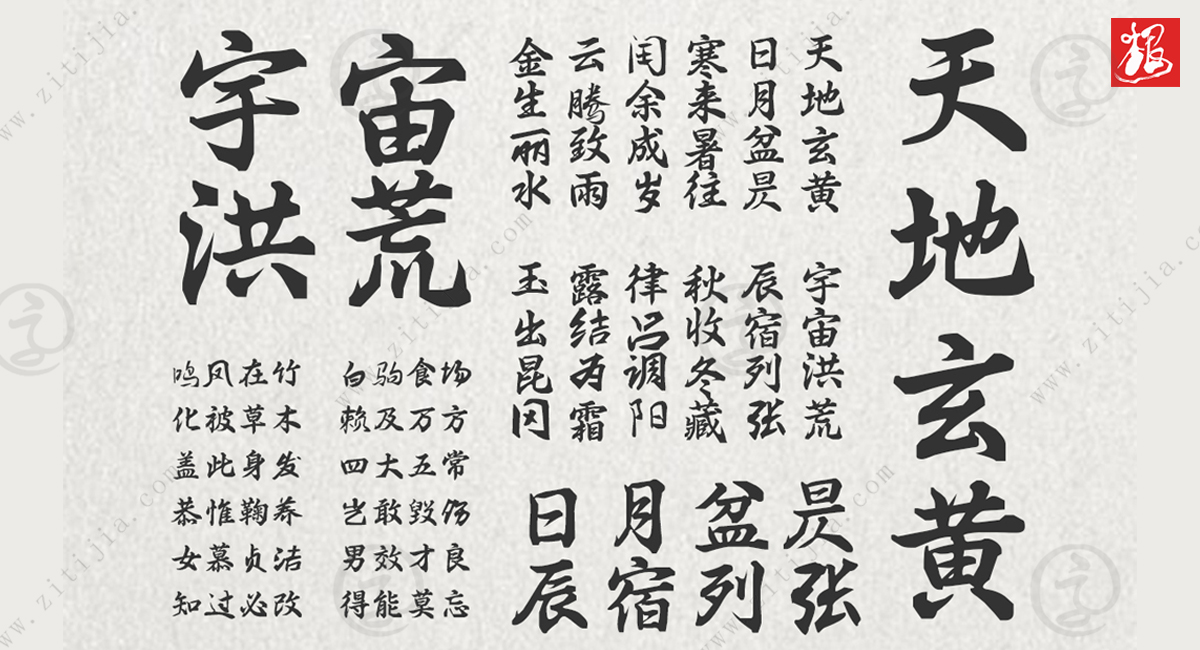 天地玄黄
天地玄黄
日月盆昃
寒来暑往
闰余成岁
云腾致雨
金生丽水
宇宙洪荒
辰宿列张
秋收冬藏
律吕调阳
露结为霜
玉出昆冈
日月盆昃
辰宿列张
宇宙
洪荒
鸣凤在竹 白驹食场
化被草木 赖及万方
盖此身发 四大五常
恭惟鞠养 岂敢毁伤
女慕贞洁 男效才良
知过必改 得能莫忘
www.zitijia.com